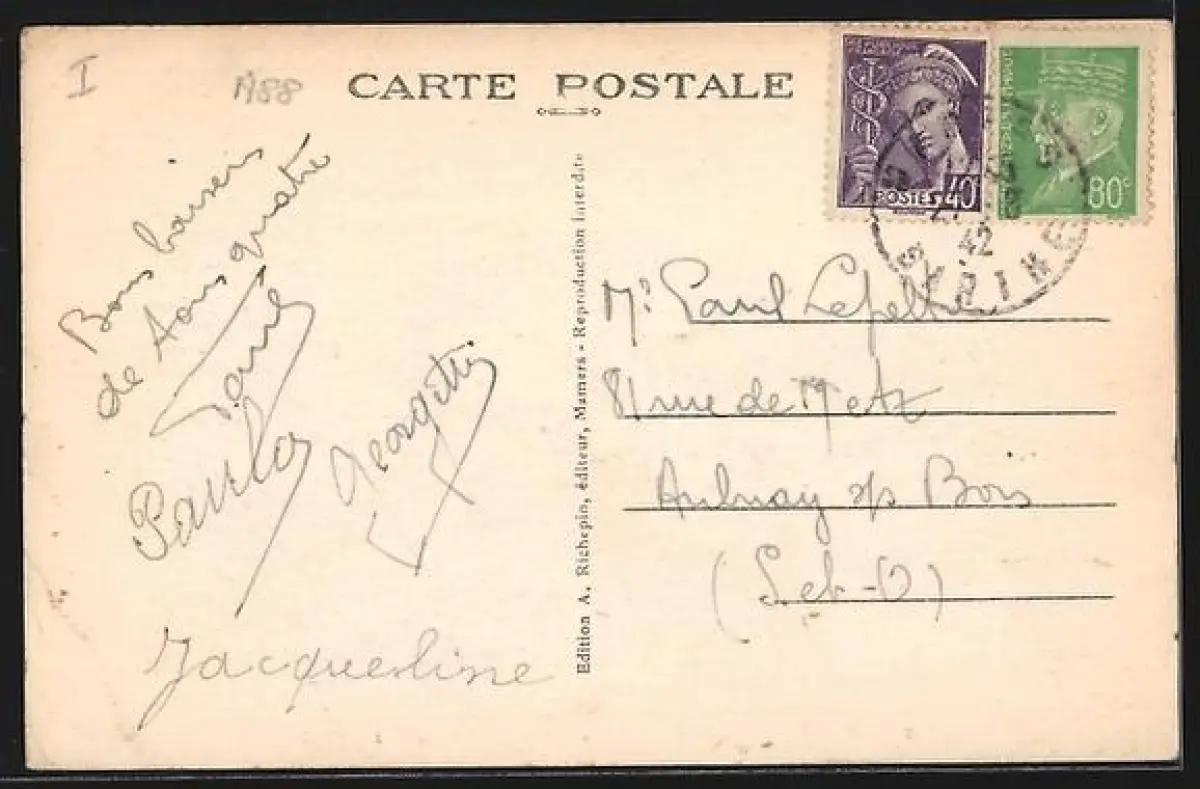 I
A88
CARTE POSTALE
POSTES 40c
80c
42
Bons baisers
de tous quatre
Paul
Paula
Georgette
Jacqueline
Edition A. Richepin, éditeur, Mamers - Reproduction interdite
Mr Paul Lepeltier
81 rue de Metz
Aulnay s/s Bois
(S et-O)